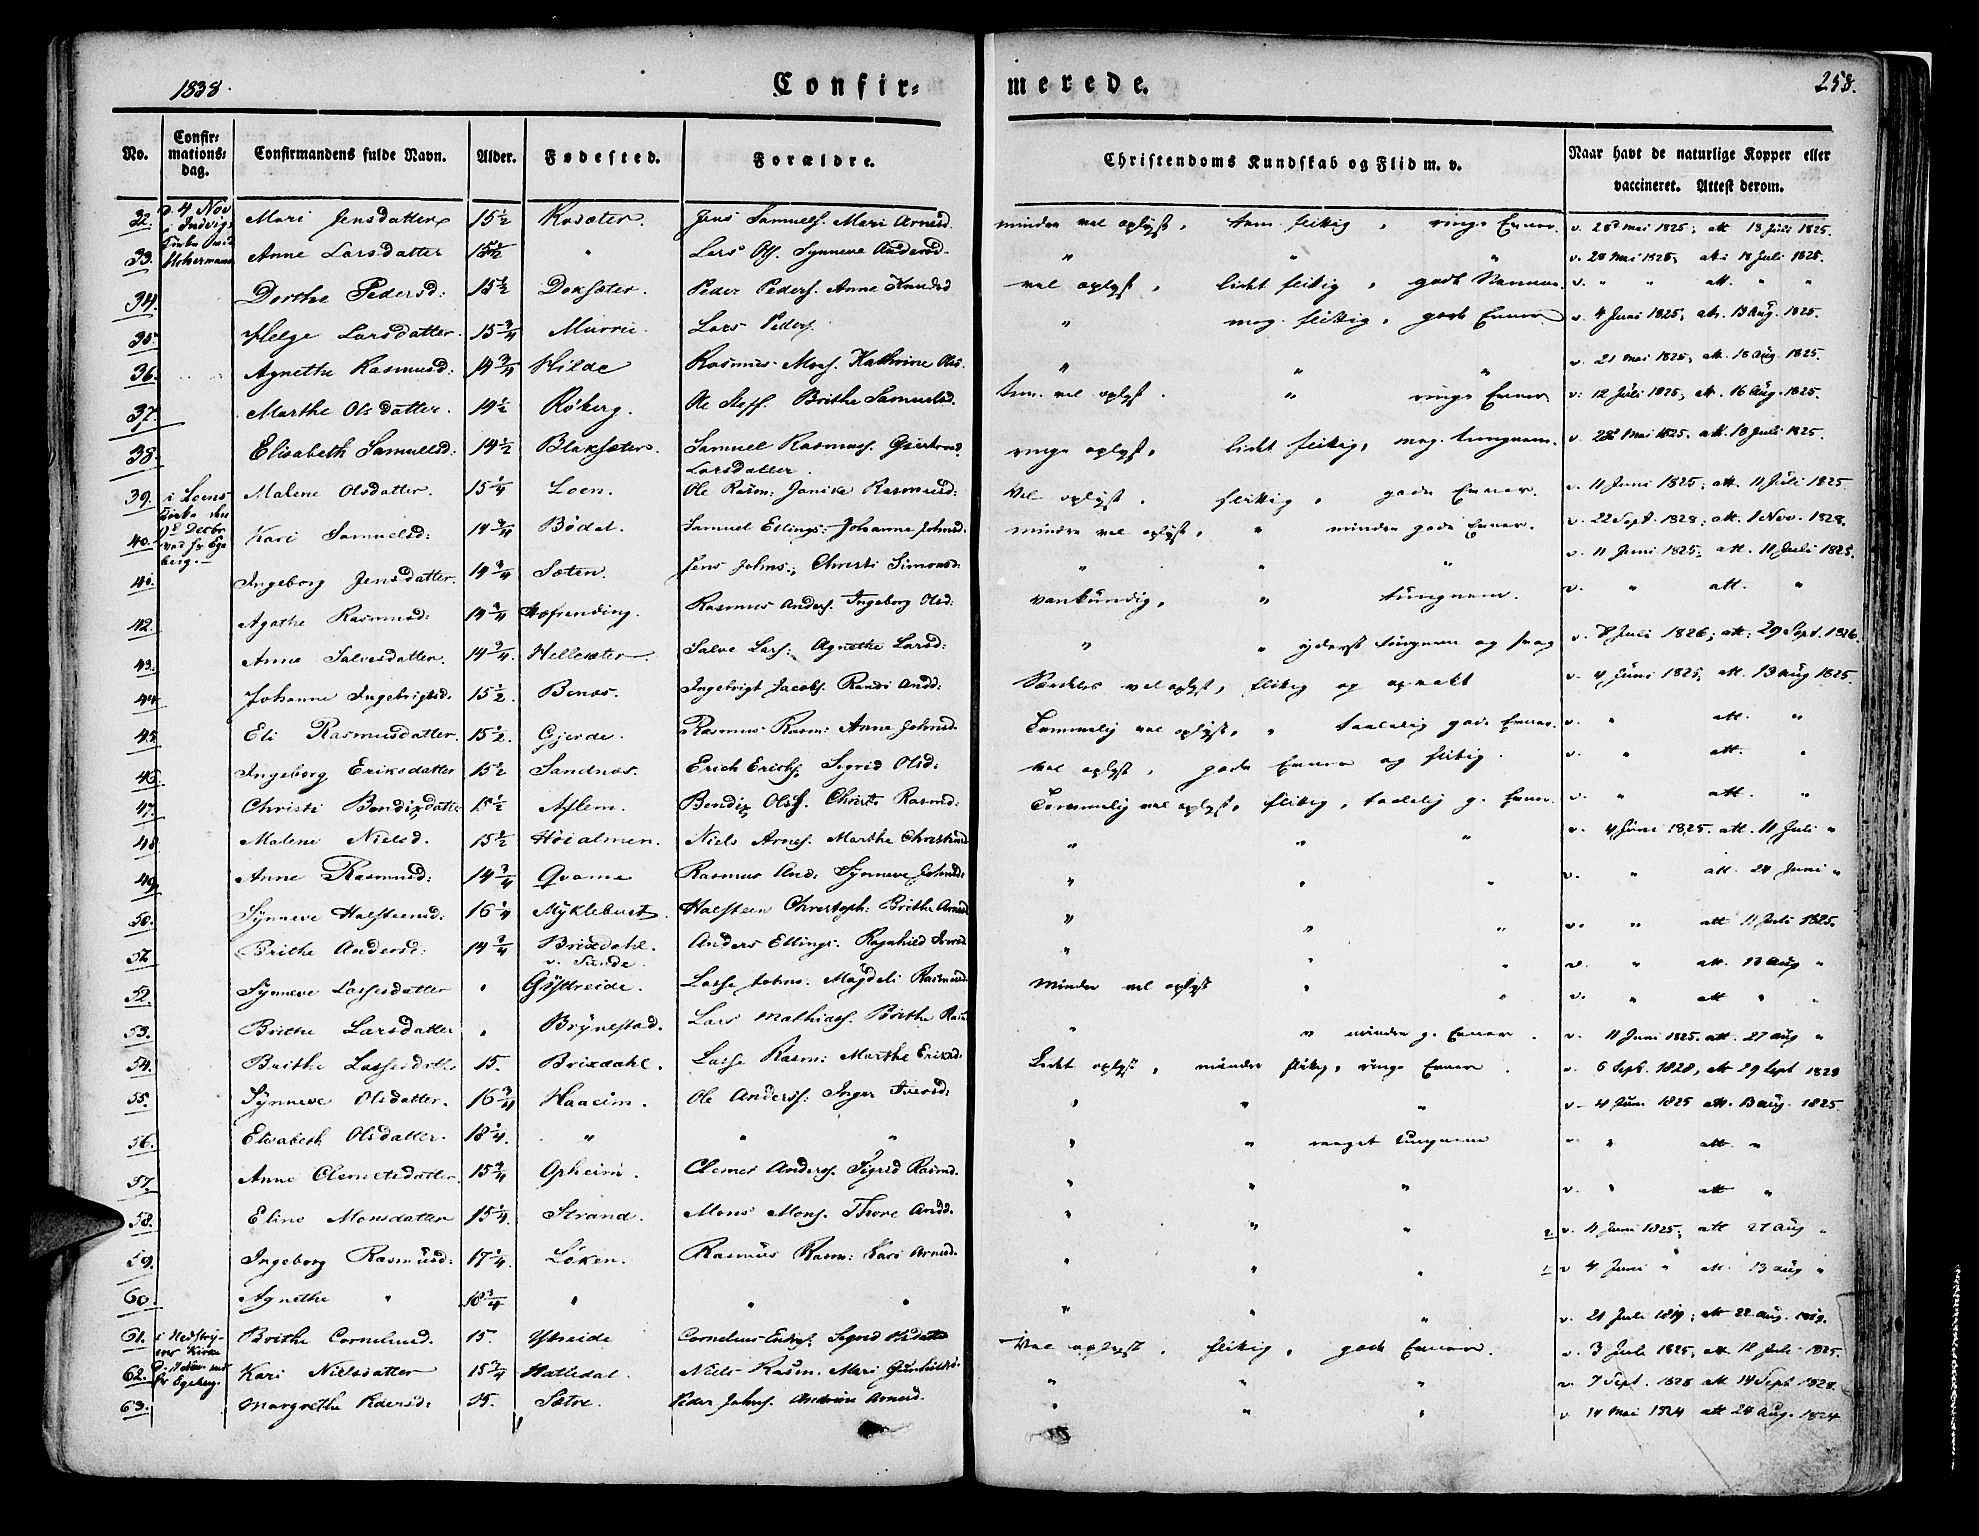 1838.
Confir=
merede.
258.
No.
Confir=
mations=
dag.
Confirmandens fulde Navn.
Alder.
Fødested.
Forældre.
Christendoms Kundskab og Flid m. v.
Naar havt de naturlige Kopper eller
vaccineret. Attest derom.
32. d. 4 Nov Mari Jensdatter 15 1/2 Jens Samuels. Mari Arnesd. mindre vel oplyst, tem. flittig, ringe Evner. v. 28 Mai 1825; att 18 Juli 1825.
33. Anne Larsdatter 15 1/2 " Lars Ols. Synneve Andersd. " " " v. 28 Mai 1825, att 18 Juli 1825.
34. Dorthe Pedersd: 15 1/2 Peder Peders. Anne vel oplyst, lidet flittig, gode v. " " att. " "
35. Helge Larsdatter. 15 3/4 Murrie Lars Peders. " meg. flittig, gode Evner. v. 4 Juni 1825, att. 13 Aug. 1825.
36. Agnethe Rasmusd: 14 3/4 Hilde Rasmus Mons. Kathrine Ols. " " " v. 21 Mai 1825, att. 18 Aug. 1825.
37. Marthe Olsdatter. 14 1/2 Røberg. Ole Steff. Brithe Samuelsd. tem. vel oplyst. " ringe Evner. v. 12 Juli 1825, att. 16 Aug. 1825.
38. Elisabeth Samuelsd: 14 1/2 Blaksæter. Samuel Rasmuss. Gjertrud
Larsdatter. ringe oplyst, lidet flittig, meg. tungnem. v. 28 Mai 1825. att. 18 Juli 1825.
39. i Loens Malene Olsdatter. 15 1/4 Loen. Ole Rasm: Janike Rasmusd: Vel oplyst. flittig, gode Evner. v. 11 Juni 1825; att. 11 Juli 1825.
40. Kari Samuelsd: 14 3/4 Bödal. Samuel Ellings: Johanne Johnsd: mindre vel oplyst, " mindre gode Evner. v. 22 Sept. 1828; att. 1 Nov. 1828.
41. Ingeborg Jensdatter. 14 3/4 Sæten. Jens Johns:, Christi Simonsd: " " " v. 11 Juni 1825; att. 11 Juli 1825.
42. Agathe Rasmusd: 14 3/4 Rasmus Anders. Ingeborg Olsd: vankundig, " tungnem. v. " att. "
43. Anne Salvesdatter. 14 3/4. Hellesæter. Salve Lars: Agnethe Larsd: " " yderst tungnem og svag v. 8 Juli 1826; att. 29 Sept. 1826.
44. Johanne Ingebrigtsd. 15 1/2. Benæs. Ingebrigt Jacobs. Randi Andd: Særdeles vel oplyst, flittig og opvakt v. 4 Juni 1825; att. 13 Aug 1825.
45. Eli Rasmusdatter. 15 1/2. Gjerde. Rasmus Rasm: Anne Johnsd: Temmelig vel oplyst, " taalelig gode Evner. v. " att. "
46. Ingeborg Eriksdatter 15 1/2 Sandnæs. Erich Erichs. Sigrid Olsd: vel oplyst, gode Evner og flittig. v. " att. "
47. Christi Bendixdatter 15 1/2 Aslem. Bendix Ols. Christi Rasmd: Temmelig vel oplyst, flittig, taalelig g. Evner. v. " att. "
48. Malene Nielsd. 15 1/2 Höialmen. Niels Arnes. Marthe Christensd " " " v. 4 Juni 1825. att. 11 Juli "
49. Anne Rasmusd: 14 3/4 Qvame Rasmus And: Synneve Johnsd: " " " v. " att. 24 Juni "
50. Synneve Halsteensd: 16 1/4 Myklebust. Halsteen Christoph: Brithe Arnesd " " " v. " att 11 Juli 1825.
51. Brithe Andersd: 14 3/4 Brixdahl.
v. Sunde. Anders Ellings. Ragnhild Iversd. " " " v. " att. 13 Aug "
52. Synneve Lassesdatter " Gytreide. Lasse Johns. Magdeli Rasmusd: Mindre vel oplyst " " v. " att " "
53. Brithe Larsdatter " Brynestad. Lars Mathias. Brithe Rasm " " mindre g. Evner. v. 11 Juni 1825. att. 27 Aug "
54. Brithe Lassesdatter 15. Brixdahl. Lasse Rasm: Marthe Eriksd: Lidet oplyst, mindre flittig, ringe Evner. v. 6 Sept. 1828, att 29 Sept 1828
55. Synneve Olsdatter. 16 3/4 Haaeim. Ole Anders: Inger Iversd: " " " v. 4 Juni 1825 att. 13 Aug. 1825.
56. Elisabeth Olsdatter. 18 1/4. " " " " " meget tungnem v. " att. "
57. Anne Clemetsdatter. 15 3/4 Opheim. Clemet Anders. Sigrid Rasmd. " " " v. " att "
58. Eline Monsdatter 15 1/4. Strand. Mons Mons. Thore Andd. " " " 2. v. 4 Juni 1825, att 27 Aug "
59. Ingeborg Rasmusd: 17 1/4. Löken. Rasmus Rasm: Kari Arnesd. " " " 1. v. 4 Juni " att. 13 Aug "
60. Agnethe " 18 3/4 " " " " " " v. 21 Juli 1819; att 22 Aug. 1819.
61. i Nedstry- Brithe Cornelsd. 15. Ytreide Cornelius Sigrid Olsdatt Vel oplyst, flittig, gode Evner. v. 3 Juli 1825, att. 12 Juli 1825.
ner Kirke
62. Kari Nielsdatter 15 3/4 Hatledal. Niels Rasm. Mari Gunhilds. " " " v. 7 Sept. 1828 att 14 Sept 1828.
63. Margrethe Pedersd: 15. Sætre. Peder Johns. Andrine Arnesd. " " " v 14 Mai 1824 att 24 Aug. 1824